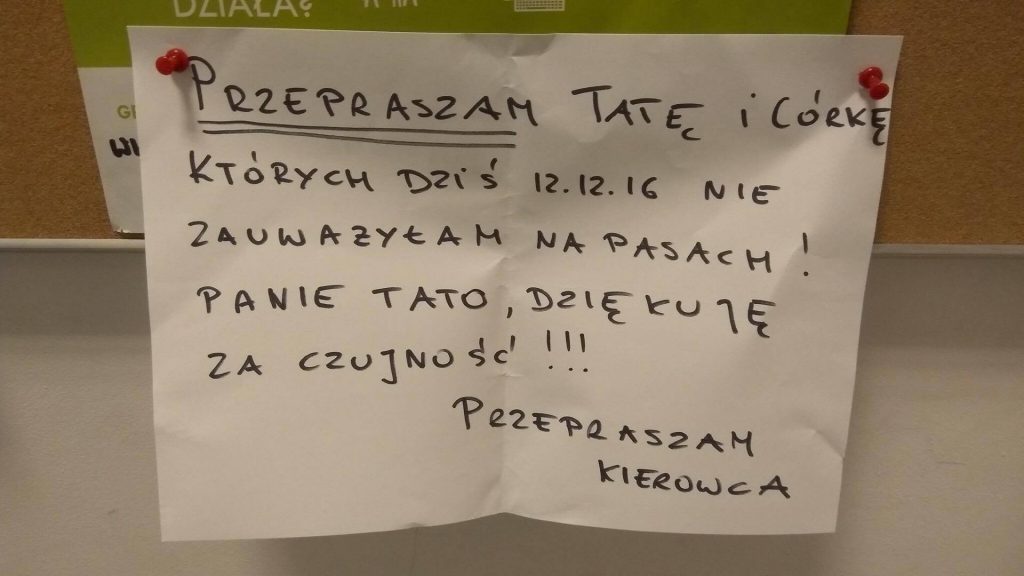 DZIAŁA?
PRZEPRASZAM TATĘ i CÓRKĘ
KTÓRYCH DZIŚ 12.12.16 NIE
ZAUWAŻYŁAM NA PASACH!
PANIE TATO, DZIĘKUJĘ
ZA CZUJNOŚĆ!!!
PRZEPRASZAM
KIEROWCA